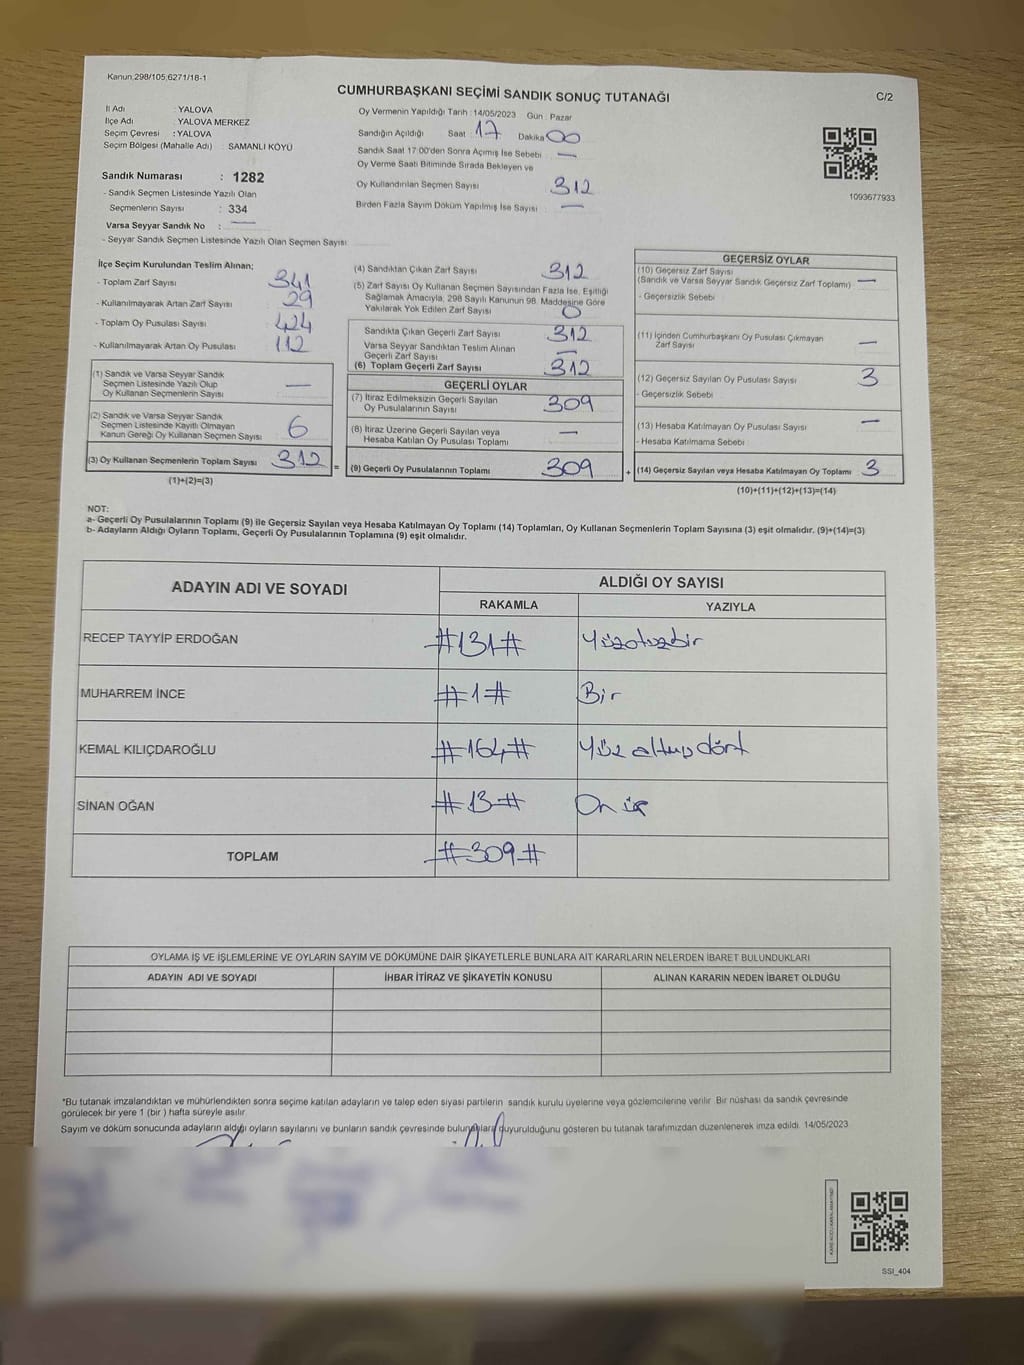 Kanun,298/105,6271/18-1
CUMHURBAŞKANI SEÇİMİ SANDIK SONUÇ TUTANAĞI
C/2
İl Adı : YALOVA
İlçe Adı : YALOVA MERKEZ
Seçim Çevresi : YALOVA
Seçim Bölgesi (Mahalle Adı) SAMANLI KÖYÜ
Sandık Numarası : 1282
- Sandık Seçmen Listesinde Yazılı Olan
Seçmenlerin Sayısı : 334
Varsa Seyyar Sandık No : —
- Seyyar Sandık Seçmen Listesinde Yazılı Olan Seçmen Sayısı
Oy Vermenin Yapıldığı Tarih : 14/05/2023 Gün : Pazar
Sandığın Açıldığı Saat : 17 Dakika 00
Sandık Saat 17:00'den Sonra Açımış İse Sebebi —
Oy Verme Saati Bitiminde Sırada Bekleyen ve
Oy Kullandırılan Seçmen Sayısı 312
Birden Fazla Sayım Döküm Yapılmış İse Sayısı : —
1093677933
İlçe Seçim Kurulundan Teslim Alınan;
- Toplam Zarf Sayısı 341
- Kullanılmayarak Artan Zarf Sayısı : 29
- Toplam Oy Pusulası Sayısı : 424
- Kullanılmayarak Artan Oy Pusulası : 112
(1) Sandık ve Varsa Seyyar Sandık
Seçmen Listesinde Yazılı Olup
Oy Kullanan Seçmenlerin Sayısı —
(2) Sandık ve Varsa Seyyar Sandık
Seçmen Listesinde Kayıtlı Olmayan
Kanun Gereği Oy Kullanan Seçmen Sayısı 6
(3) Oy Kullanan Seçmenlerin Toplam Sayısı 312 =
(1)+(2)=(3)
(4) Sandıktan Çıkan Zarf Sayısı 312
(5) Zarf Sayısı Oy Kullanan Seçmen Sayısından Fazla İse, Eşitliği
Sağlamak Amacıyla, 298 Sayılı Kanunun 98. Maddesine Göre
Yakılarak Yok Edilen Zarf Sayısı 0
Sandıkta Çıkan Geçerli Zarf Sayısı 312
Varsa Seyyar Sandıktan Teslim Alınan
Geçerli Zarf Sayısı —
(6) Toplam Geçerli Zarf Sayısı 312
GEÇERLİ OYLAR
(7) İtiraz Edilmeksizin Geçerli Sayılan
Oy Pusulalarının Sayısı 309
(8) İtiraz Üzerine Geçerli Sayılan veya
Hesaba Katılan Oy Pusulası Toplamı —
(9) Geçerli Oy Pusulalarının Toplamı 309 +
GEÇERSİZ OYLAR
(10) Geçersiz Zarf Sayısı
(Sandık ve Varsa Seyyar Sandık Geçersiz Zarf Toplamı) —
- Geçersizlik Sebebi
(11) İçinden Cumhurbaşkanı Oy Pusulası Çıkmayan
Zarf Sayısı —
(12) Geçersiz Sayılan Oy Pusulası Sayısı 3
- Geçersizlik Sebebi
(13) Hesaba Katılmayan Oy Pusulası Sayısı —
- Hesaba Katılmama Sebebi
(14) Geçersiz Sayılan veya Hesaba Katılmayan Oy Toplamı 3
(10)+(11)+(12)+(13)=(14)
NOT:
a- Geçerli Oy Pusulalarının Toplamı (9) ile Geçersiz Sayılan veya Hesaba Katılmayan Oy Toplamı (14) Toplamları, Oy Kullanan Seçmenlerin Toplam Sayısına (3) eşit olmalıdır. (9)+(14)=(3)
b- Adayların Aldığı Oyların Toplamı, Geçerli Oy Pusulalarının Toplamına (9) eşit olmalıdır.
ADAYIN ADI VE SOYADI ALDIĞI OY SAYISI
RAKAMLA YAZIYLA
RECEP TAYYİP ERDOĞAN #131# Yüzotuzbir
MUHARREM İNCE #1# Bir
KEMAL KILIÇDAROĞLU #164# Yüz altmış dört
SİNAN OĞAN #13# On üç
TOPLAM #309#
OYLAMA İŞ VE İŞLEMLERİNE VE OYLARIN SAYIM VE DÖKÜMÜNE DAİR ŞİKAYETLERLE BUNLARA AİT KARARLARIN NELERDEN İBARET BULUNDUKLARI
ADAYIN ADI VE SOYADI İHBAR İTİRAZ VE ŞİKAYETİN KONUSU ALINAN KARARIN NEDEN İBARET OLDUĞU
*Bu tutanak imzalandıktan ve mühürlendikten sonra seçime katılan adayların ve talep eden siyasi partilerin sandık kurulu üyelerine veya gözlemcilerine verilir. Bir nüshası da sandık çevresinde
görülecek bir yere 1 (bir ) hafta süreyle asılır.
Sayım ve döküm sonucunda adayların aldığı oyların sayılarını ve bunların sandık çevresinde bulunanlara duyurulduğunu gösteren bu tutanak tarafımızdan düzenlenerek imza edildi. 14/05/2023
SSI_404